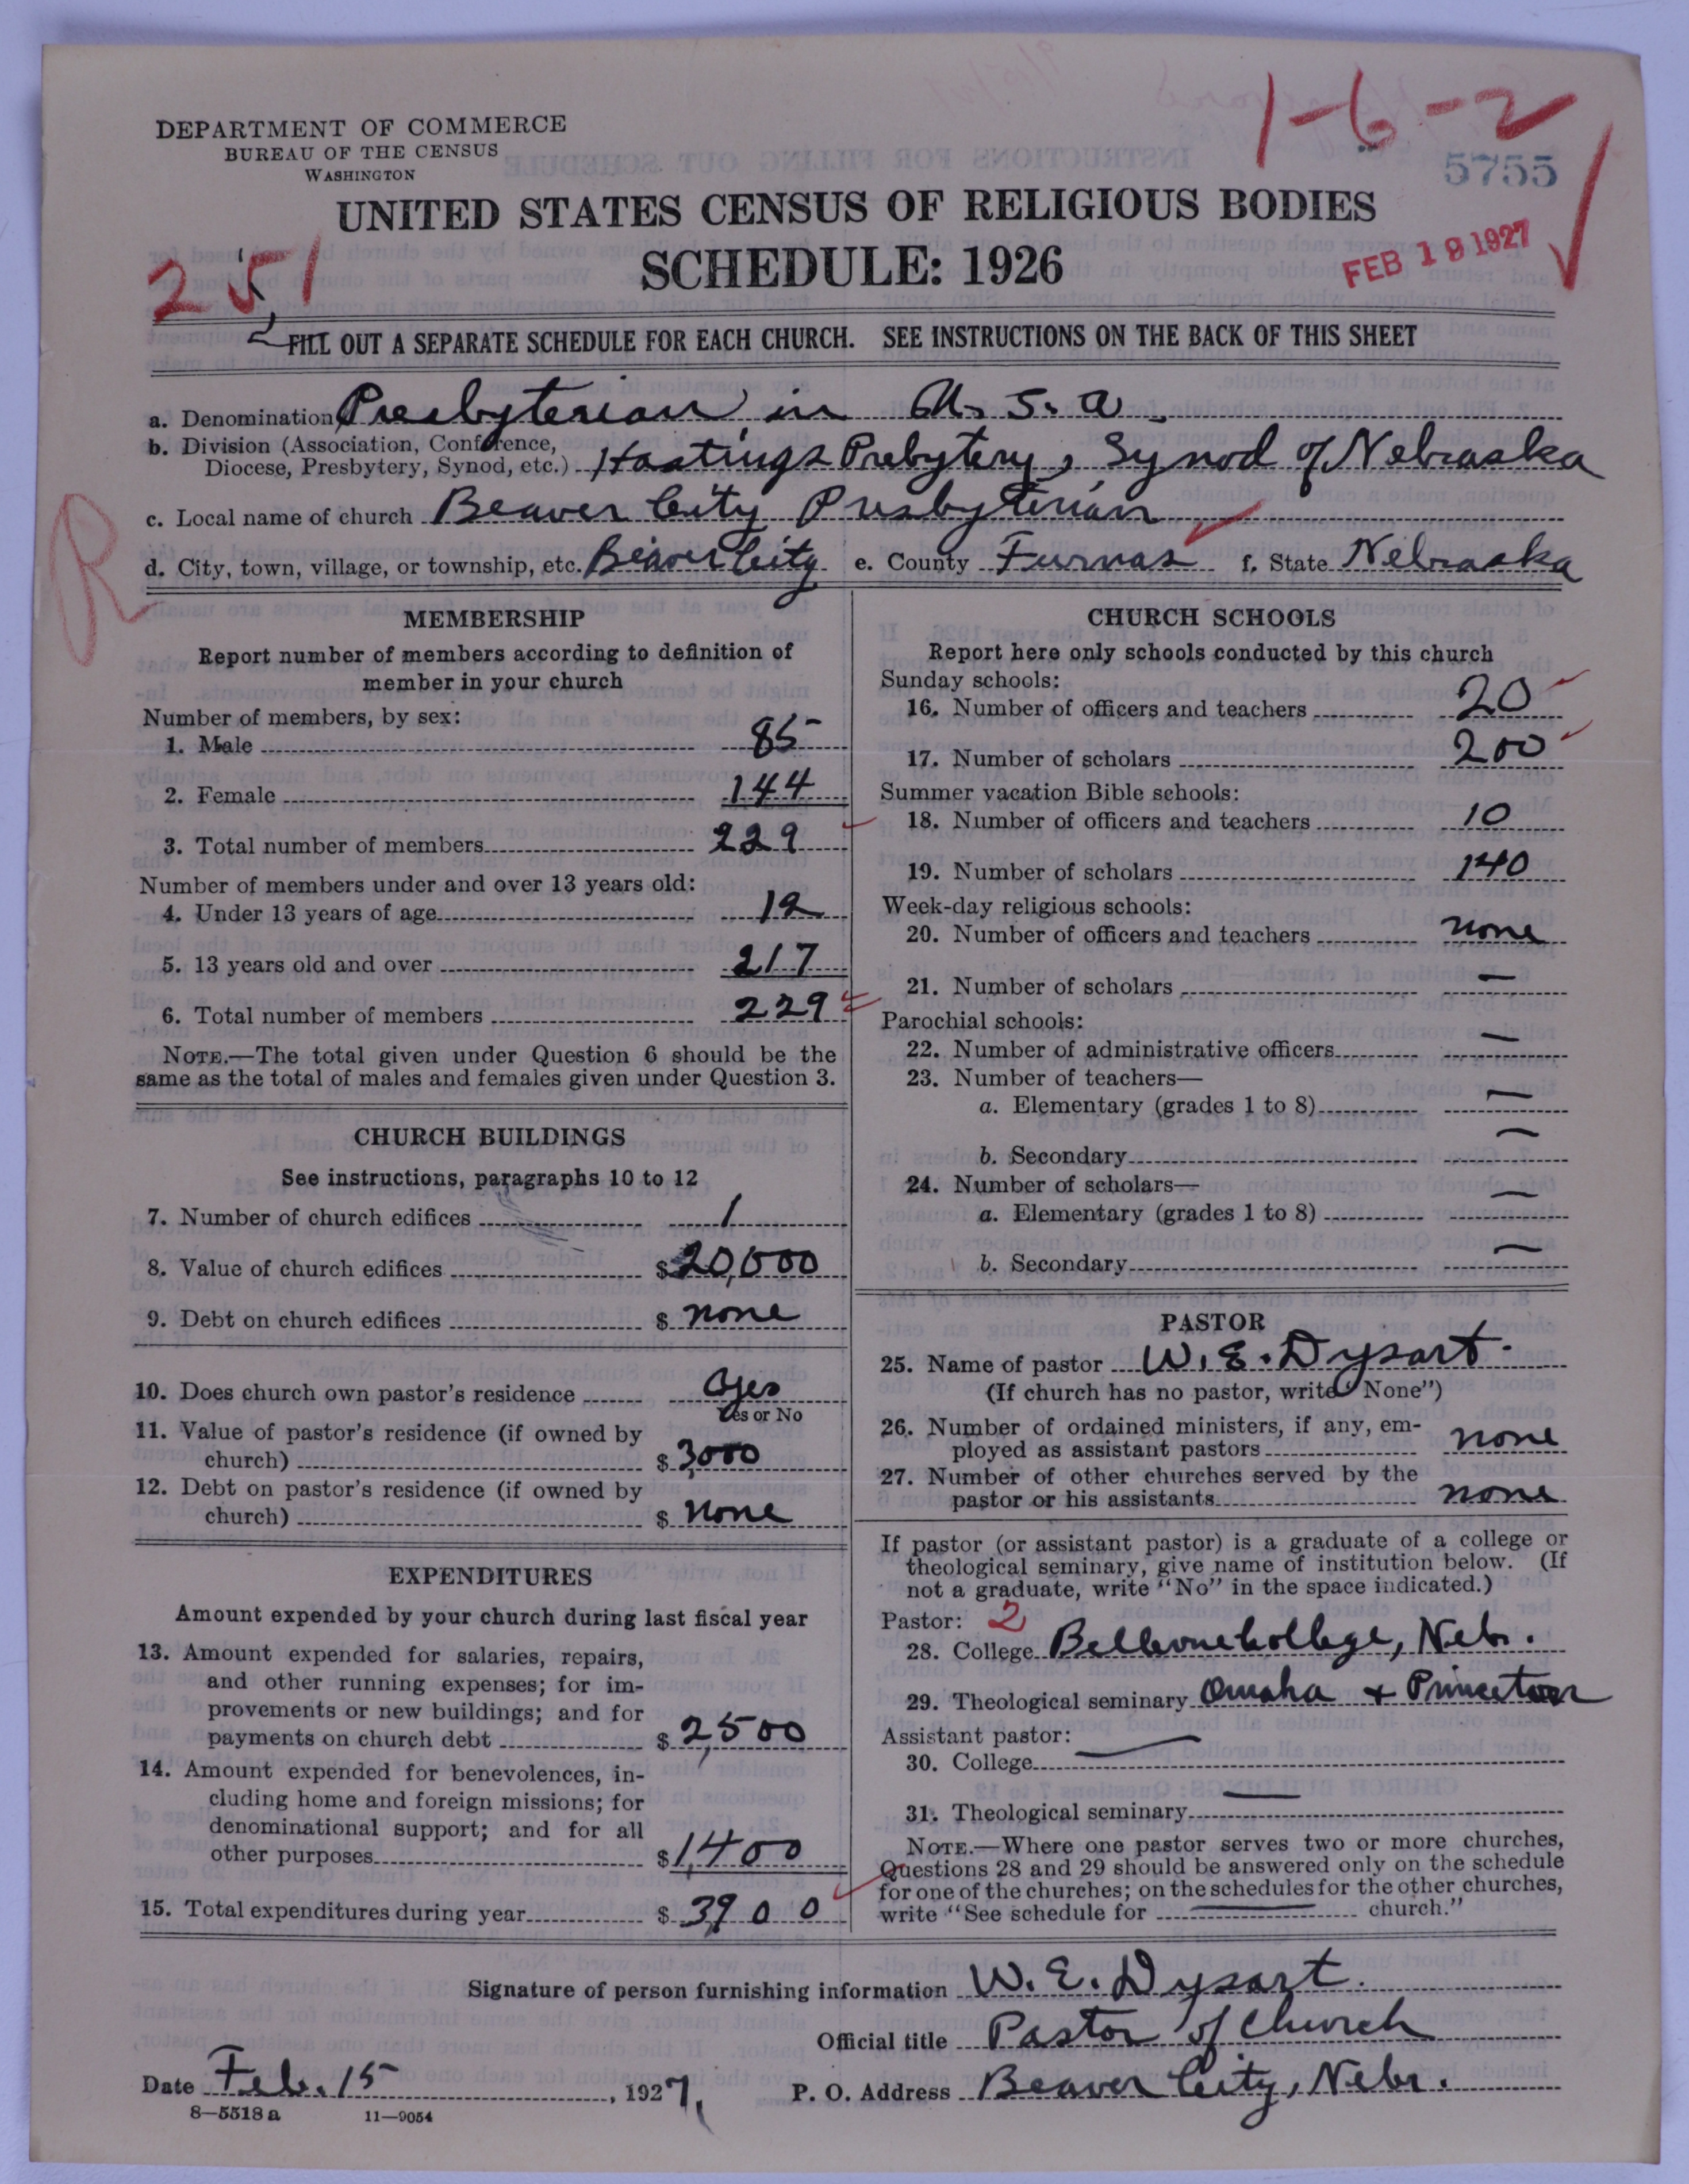 1-6-2
5755
DEPARTMENT OF COMMERCE
BUREAU OF THE CENSUS
WASHINGTON
UNITED STATES CENSUS OF RELIGIOUS BODIES
SCHEDULE: 1926
FEB 19 1927
251
FILL OUT A SEPARATE SCHEDULE FOR EACH CHURCH. SEE INSTRUCTIONS ON THE BACK OF THIS SHEET
a. Denomination Presbyterian in U. S. A.
b. Division (Association, Conference,
Diocese, Presbytery, Synod, etc.) Hastings Prebytery, Synod of Nebraska
c. Local name of church Beaver City Presbyterian
R
d. City, town, village, or township, etc. Beaver City e. County Furnas f. State Nebraska
MEMBERSHIP
Report number of members according to definition of
member in your church
Number of members, by sex:
1. Male 85
2. Female 144
3. Total number of members 229
Number of members under and over 13 years old:
4. Under 13 years of age 12
5. 13 years old and over 217
6. Total number of members 229
NOTE.—The total given under Question 6 should be the
same as the total of males and females given under Question 3.
CHURCH BUILDINGS
See instructions, paragraphs 10 to 12
7. Number of church edifices 1
8. Value of church edifices $ 20,000
9. Debt on church edifices $ none
10. Does church own pastor's residence yes
Yes or No
11. Value of pastor's residence (if owned by
church) $ 3,000
12. Debt on pastor's residence (if owned by
church) $ none
EXPENDITURES
Amount expended by your church during last fiscal year
13. Amount expended for salaries, repairs,
and other running expenses; for im-
provements or new buildings; and for
payments on church debt $ 2,500
14. Amount expended for benevolences, in-
cluding home and foreign missions; for
denominational support; and for all
other purposes $ 1,400
15. Total expenditures during year $ 3,900
CHURCH SCHOOLS
Report here only schools conducted by this church
Sunday schools:
16. Number of officers and teachers 20
17. Number of scholars 200
Summer vacation Bible schools:
18. Number of officers and teachers 10
19. Number of scholars 140
Week-day religious schools:
20. Number of officers and teachers none
21. Number of scholars —
Parochial schools:
22. Number of administrative officers —
23. Number of teachers—
a. Elementary (grades 1 to 8) —
b. Secondary —
24. Number of scholars—
a. Elementary (grades 1 to 8) —
b. Secondary —
PASTOR
25. Name of pastor W. E. Dysart.
(If church has no pastor, write "None")
26. Number of ordained ministers, if any, em-
ployed as assistant pastors none
27. Number of other churches served by the
pastor or his assistants none
If pastor (or assistant pastor) is a graduate of a college or
theological seminary, give name of institution below. (If
not a graduate, write "No" in the space indicated.)
Pastor: 2
28. College Bellevue College, Nebr.
29. Theological seminary Omaha + Princeton
Assistant pastor: —
30. College
31. Theological seminary —
NOTE.—Where one pastor serves two or more churches,
Questions 28 and 29 should be answered only on the schedule
for one of the churches; on the schedules for the other churches,
write "See schedule for — church."
Signature of person furnishing information W. E. Dysart.
Official title Pastor of Church
Date Feb. 15, 1927, P. O. Address Beaver City, Nebr.
8—5518 a 11—9054